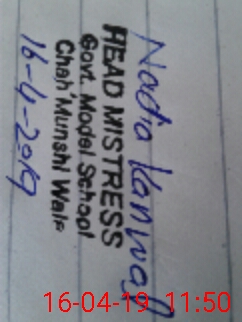 Nadia Kanwal
HEAD MISTRESS
Govt. Model School
Chah Munshi Wala
16-4-2019
16-04-19 11:50